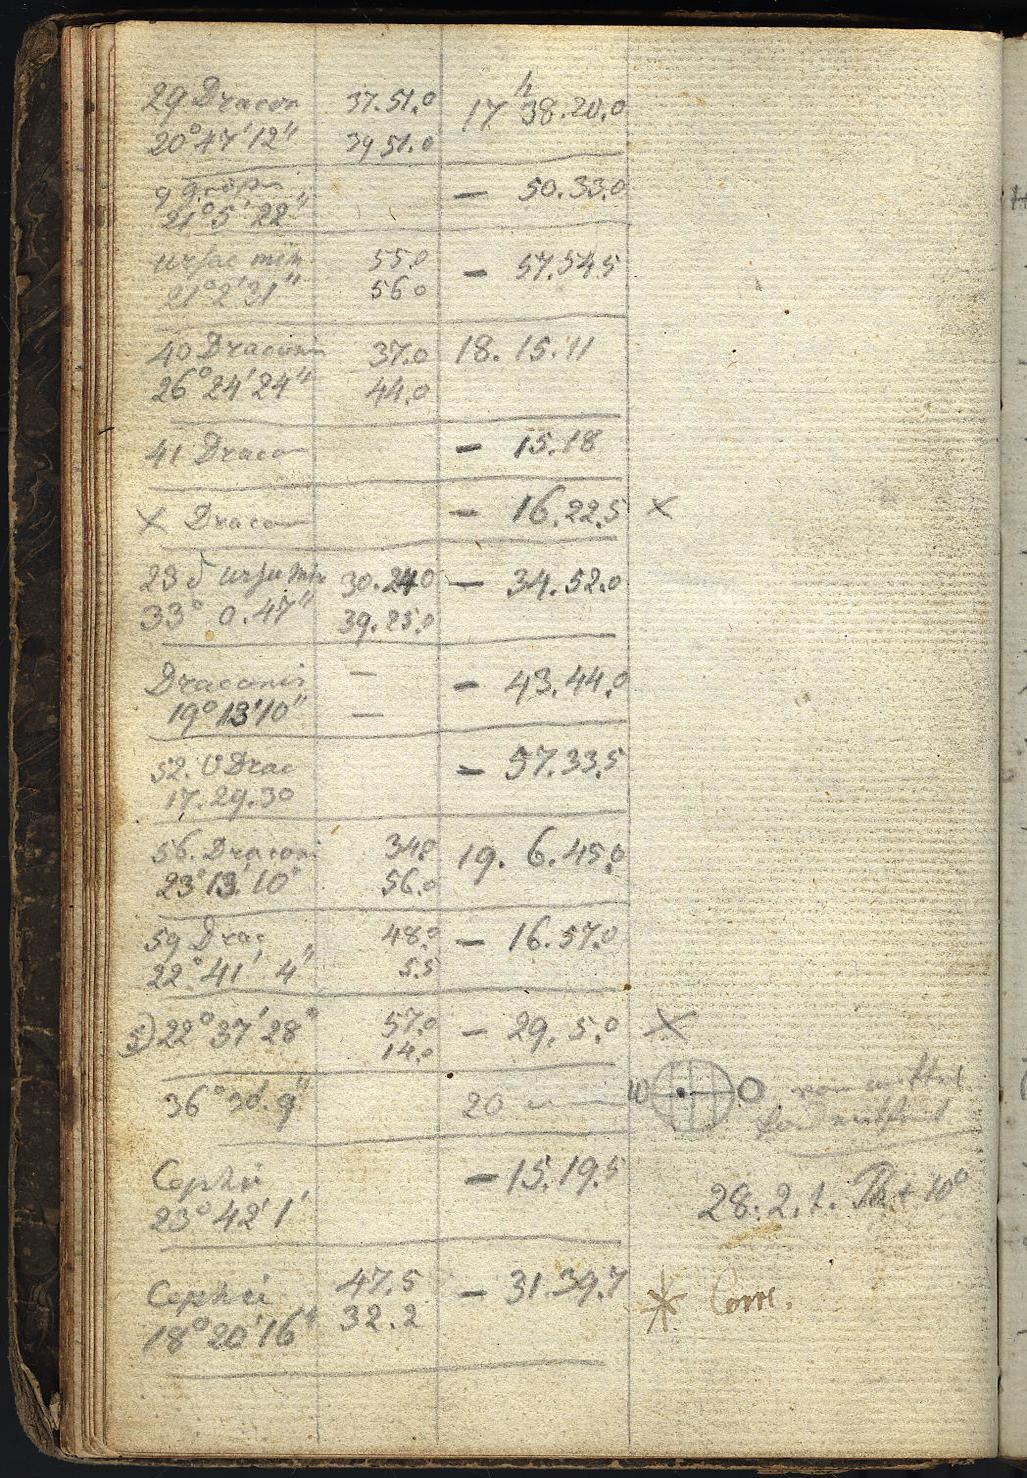 29 Dracon 37.51.0 17 h 38.20.0
20°47'12" 39 51.0
9 — 50.33.0
21°5'22"
ursae min 55.0 — 57.54.5
21°2'31" 56 0
40 Draconis 37.0 18. 15. 11
26°24'24" 44.0
41 Dracon — 15.18
X Dracon — 16.22.5 X
23 δ ursae min 30.24.0 — 34.52.0
33° 0.47" 39.25.0
Draconis — — 43.44.0
19°13'10" —
52. υ Drac — 57.33.5
17.29.30
56. Draconi 34.0 19. 6.45.0
23°13'10" 56.0
59 Drac 48.0 — 16.57.0
22°41' 4" 5.5
22°37'28" 57.0 — 29. 5.0 X
14.0
36° 9" 20 —
W O
Cephei — 15.19.5
23°42'1' 28. 2. + 10°
Cephei 47.5 — 31.39.7 * Corr.
18°20'16" 32.2